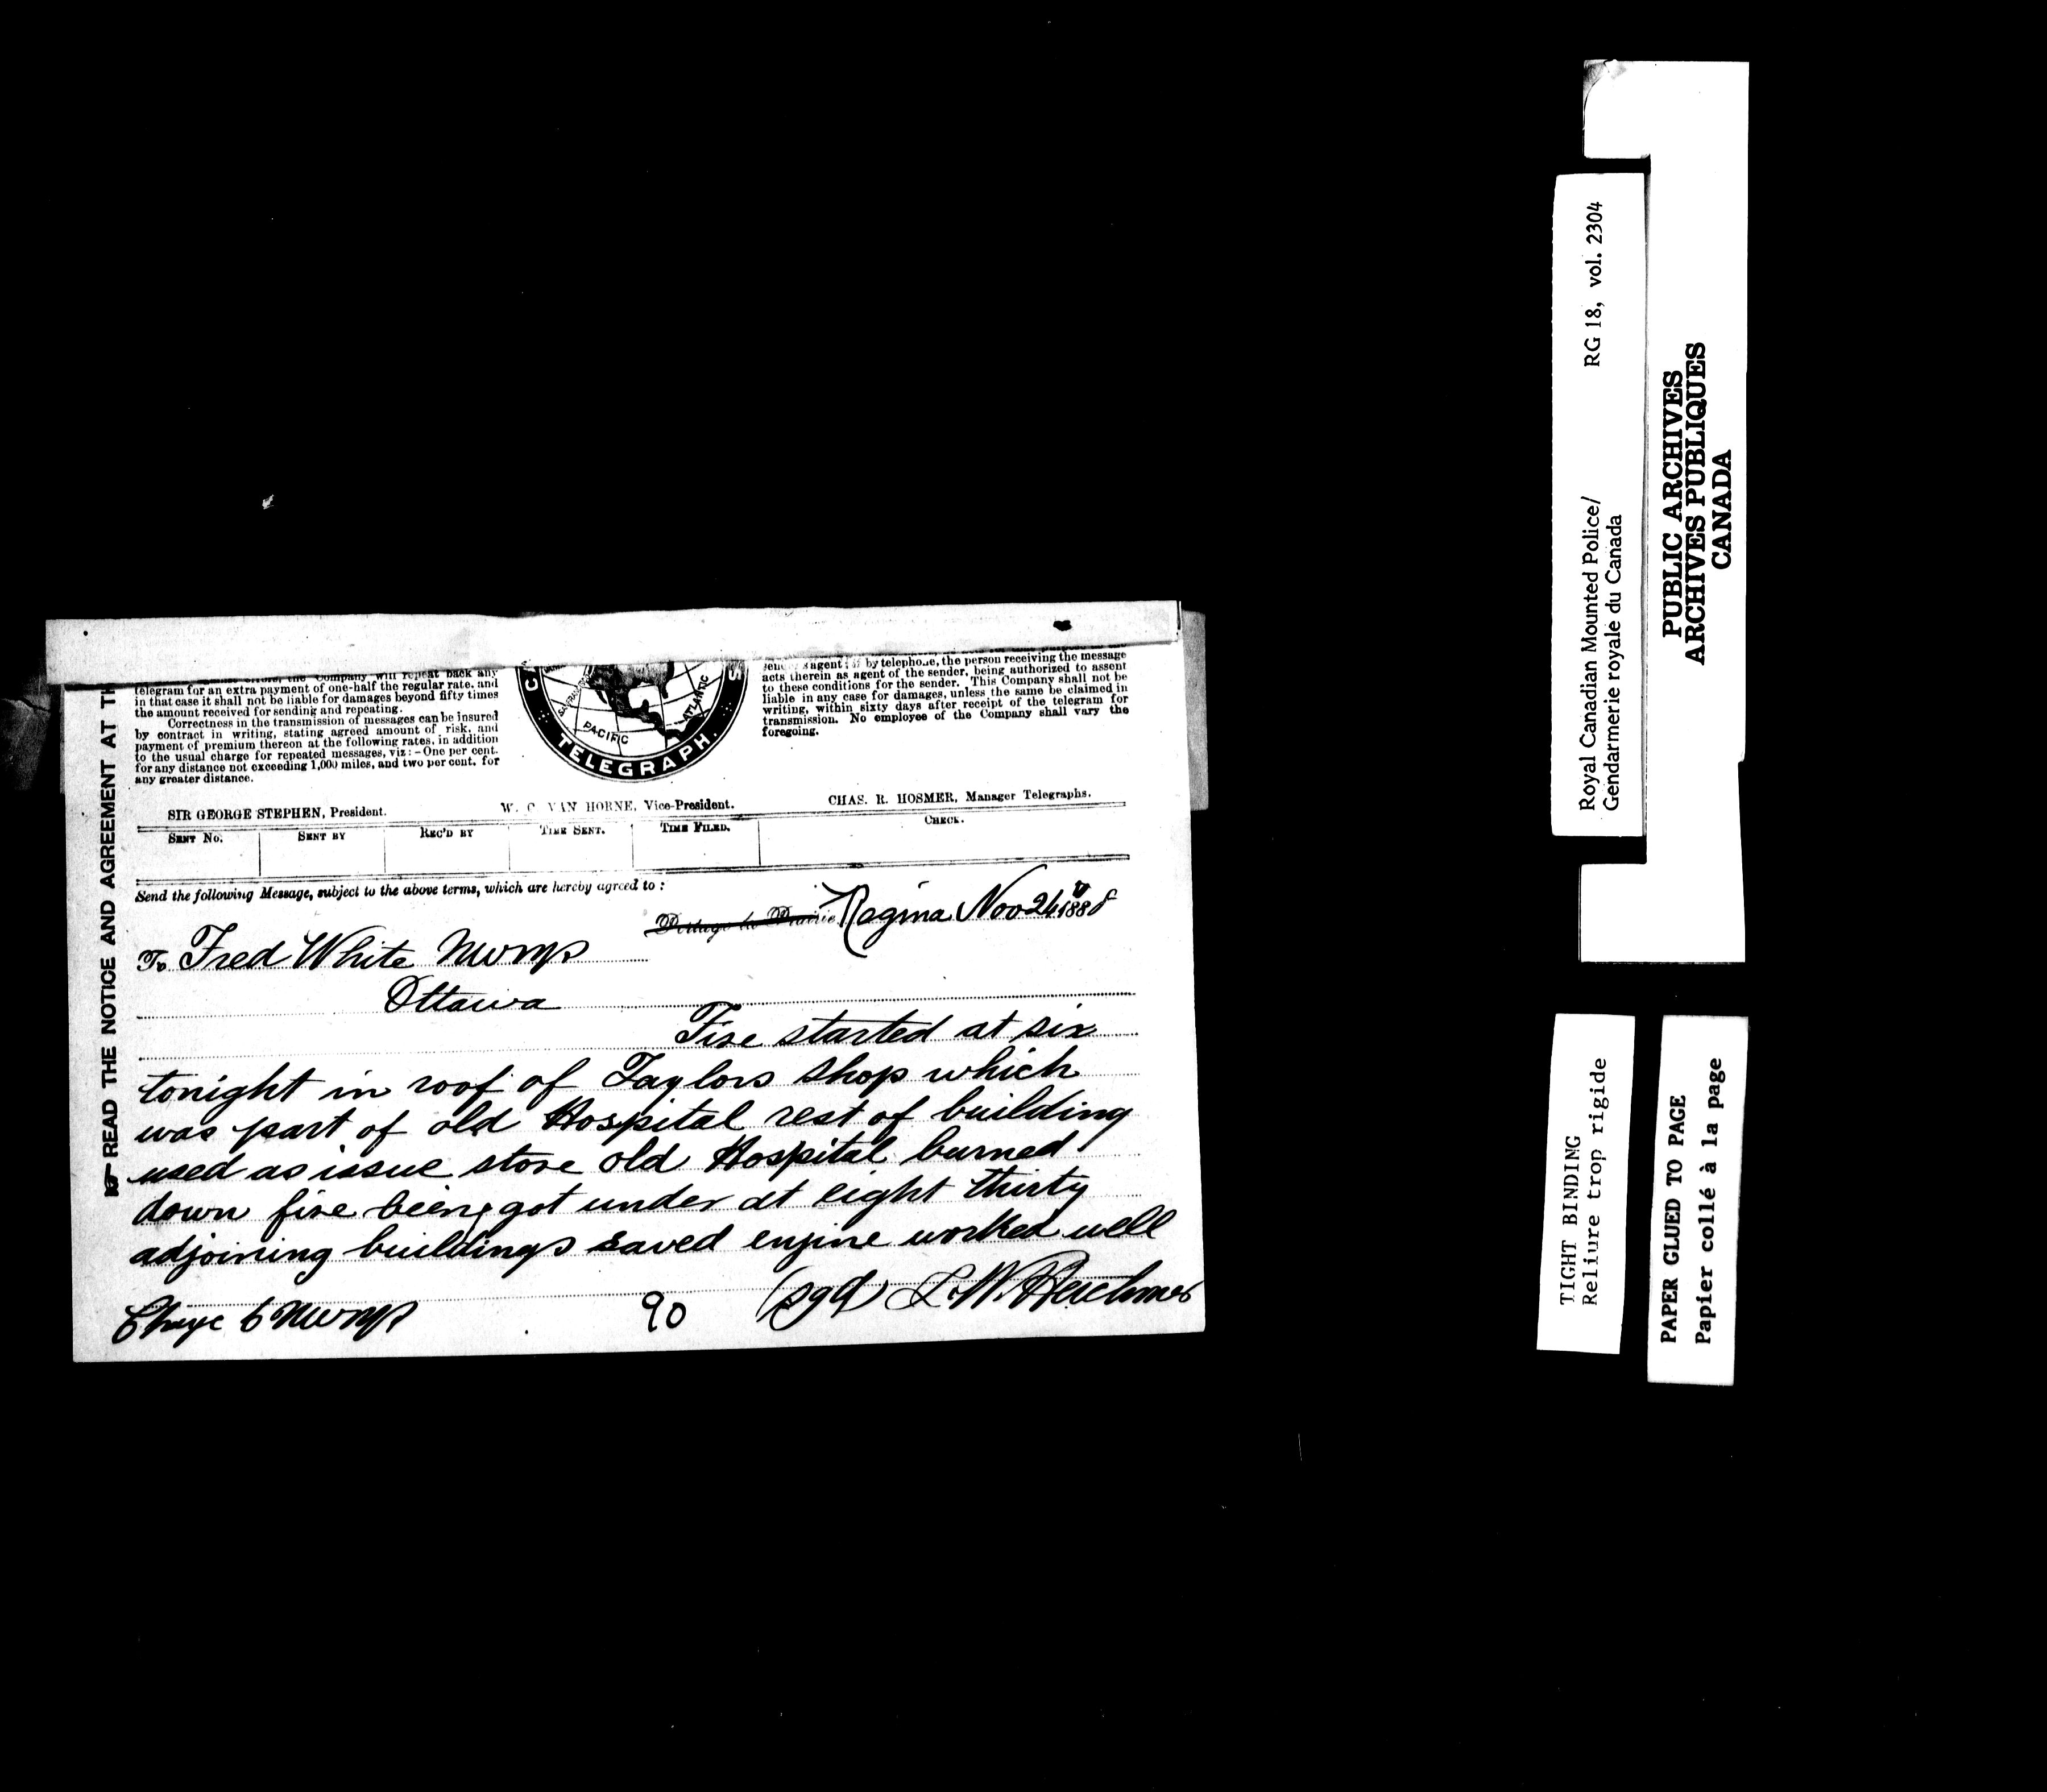 READ THE NOTICE AND AGREEMENT AT TH
the Company will repeat back any
telegram for an extra payment of one-half the regular rate, and
in that case it shall not be liable for damages beyond fifty times
the amount received for sending and repeating.
Correctness in the transmission of messages can be insured
by contract in writing, stating agreed amount of risk, and
payment of premium thereon at the following rates, in addition
to the usual charge for repeated messages, viz:—One per cent.
for any distance not exceeding 1,000 miles, and two per cent. for
any greater distance.
PACIFIC
ATLANTIC
TELEGRAPH.
agent; if by telephone, the person receiving the message
acts therein as agent of the sender, being authorized to assent
to these conditions for the sender. This Company shall not be
liable in any case for damages, unless the same be claimed in
writing, within sixty days after receipt of the telegram for
transmission. No employee of the Company shall vary the
foregoing.
SIR GEORGE STEPHEN, President.
W. C. VAN HORNE, Vice-President.
CHAS. R. HOSMER, Manager Telegraphs.
SENT No.
SENT BY
REC'D BY
TIME SENT.
TIME FILED.
CHECK.
Send the following Message, subject to the above terms, which are hereby agreed to:
Portage la Prairie Regina Nov 24 1888
To Fred White NWMP
Ottawa
Fire started at six
tonight in roof of Taylors shop which
was part of old Hospital rest of building
used as issue store old Hospital burned
down fire being got under at eight thirty
adjoining buildings saved engine worked well
(sgd) L.W. Herchmer
Charge to NWMP
90
Royal Canadian Mounted Police/
Gendarmerie royale du Canada
RG 18, vol. 2304
PUBLIC ARCHIVES
ARCHIVES PUBLIQUES
CANADA
TIGHT BINDING
Reliure trop rigide
PAPER GLUED TO PAGE
Papier collé à la page